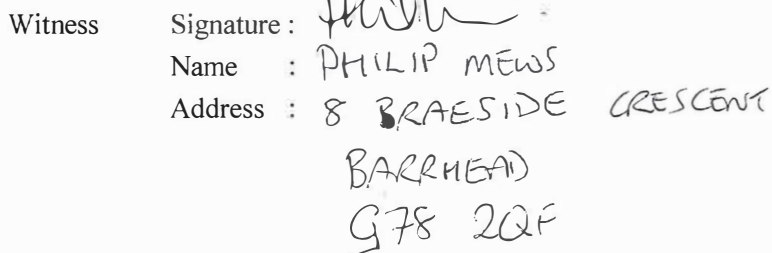 Witness Signature :
Name : PHILIP MEWS
Address : 8 BRAESIDE CRESCENT
BARRHEAD
G78 2QF